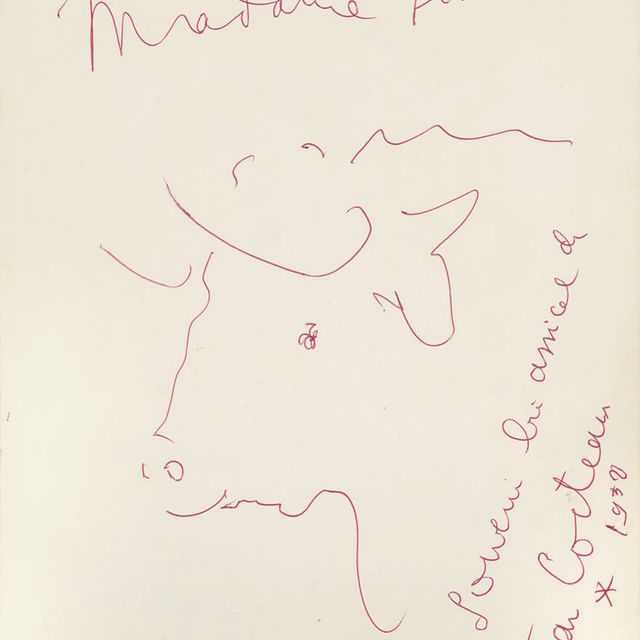 Madame
Souvenir bien amical de
Jean Cocteau
* 1938